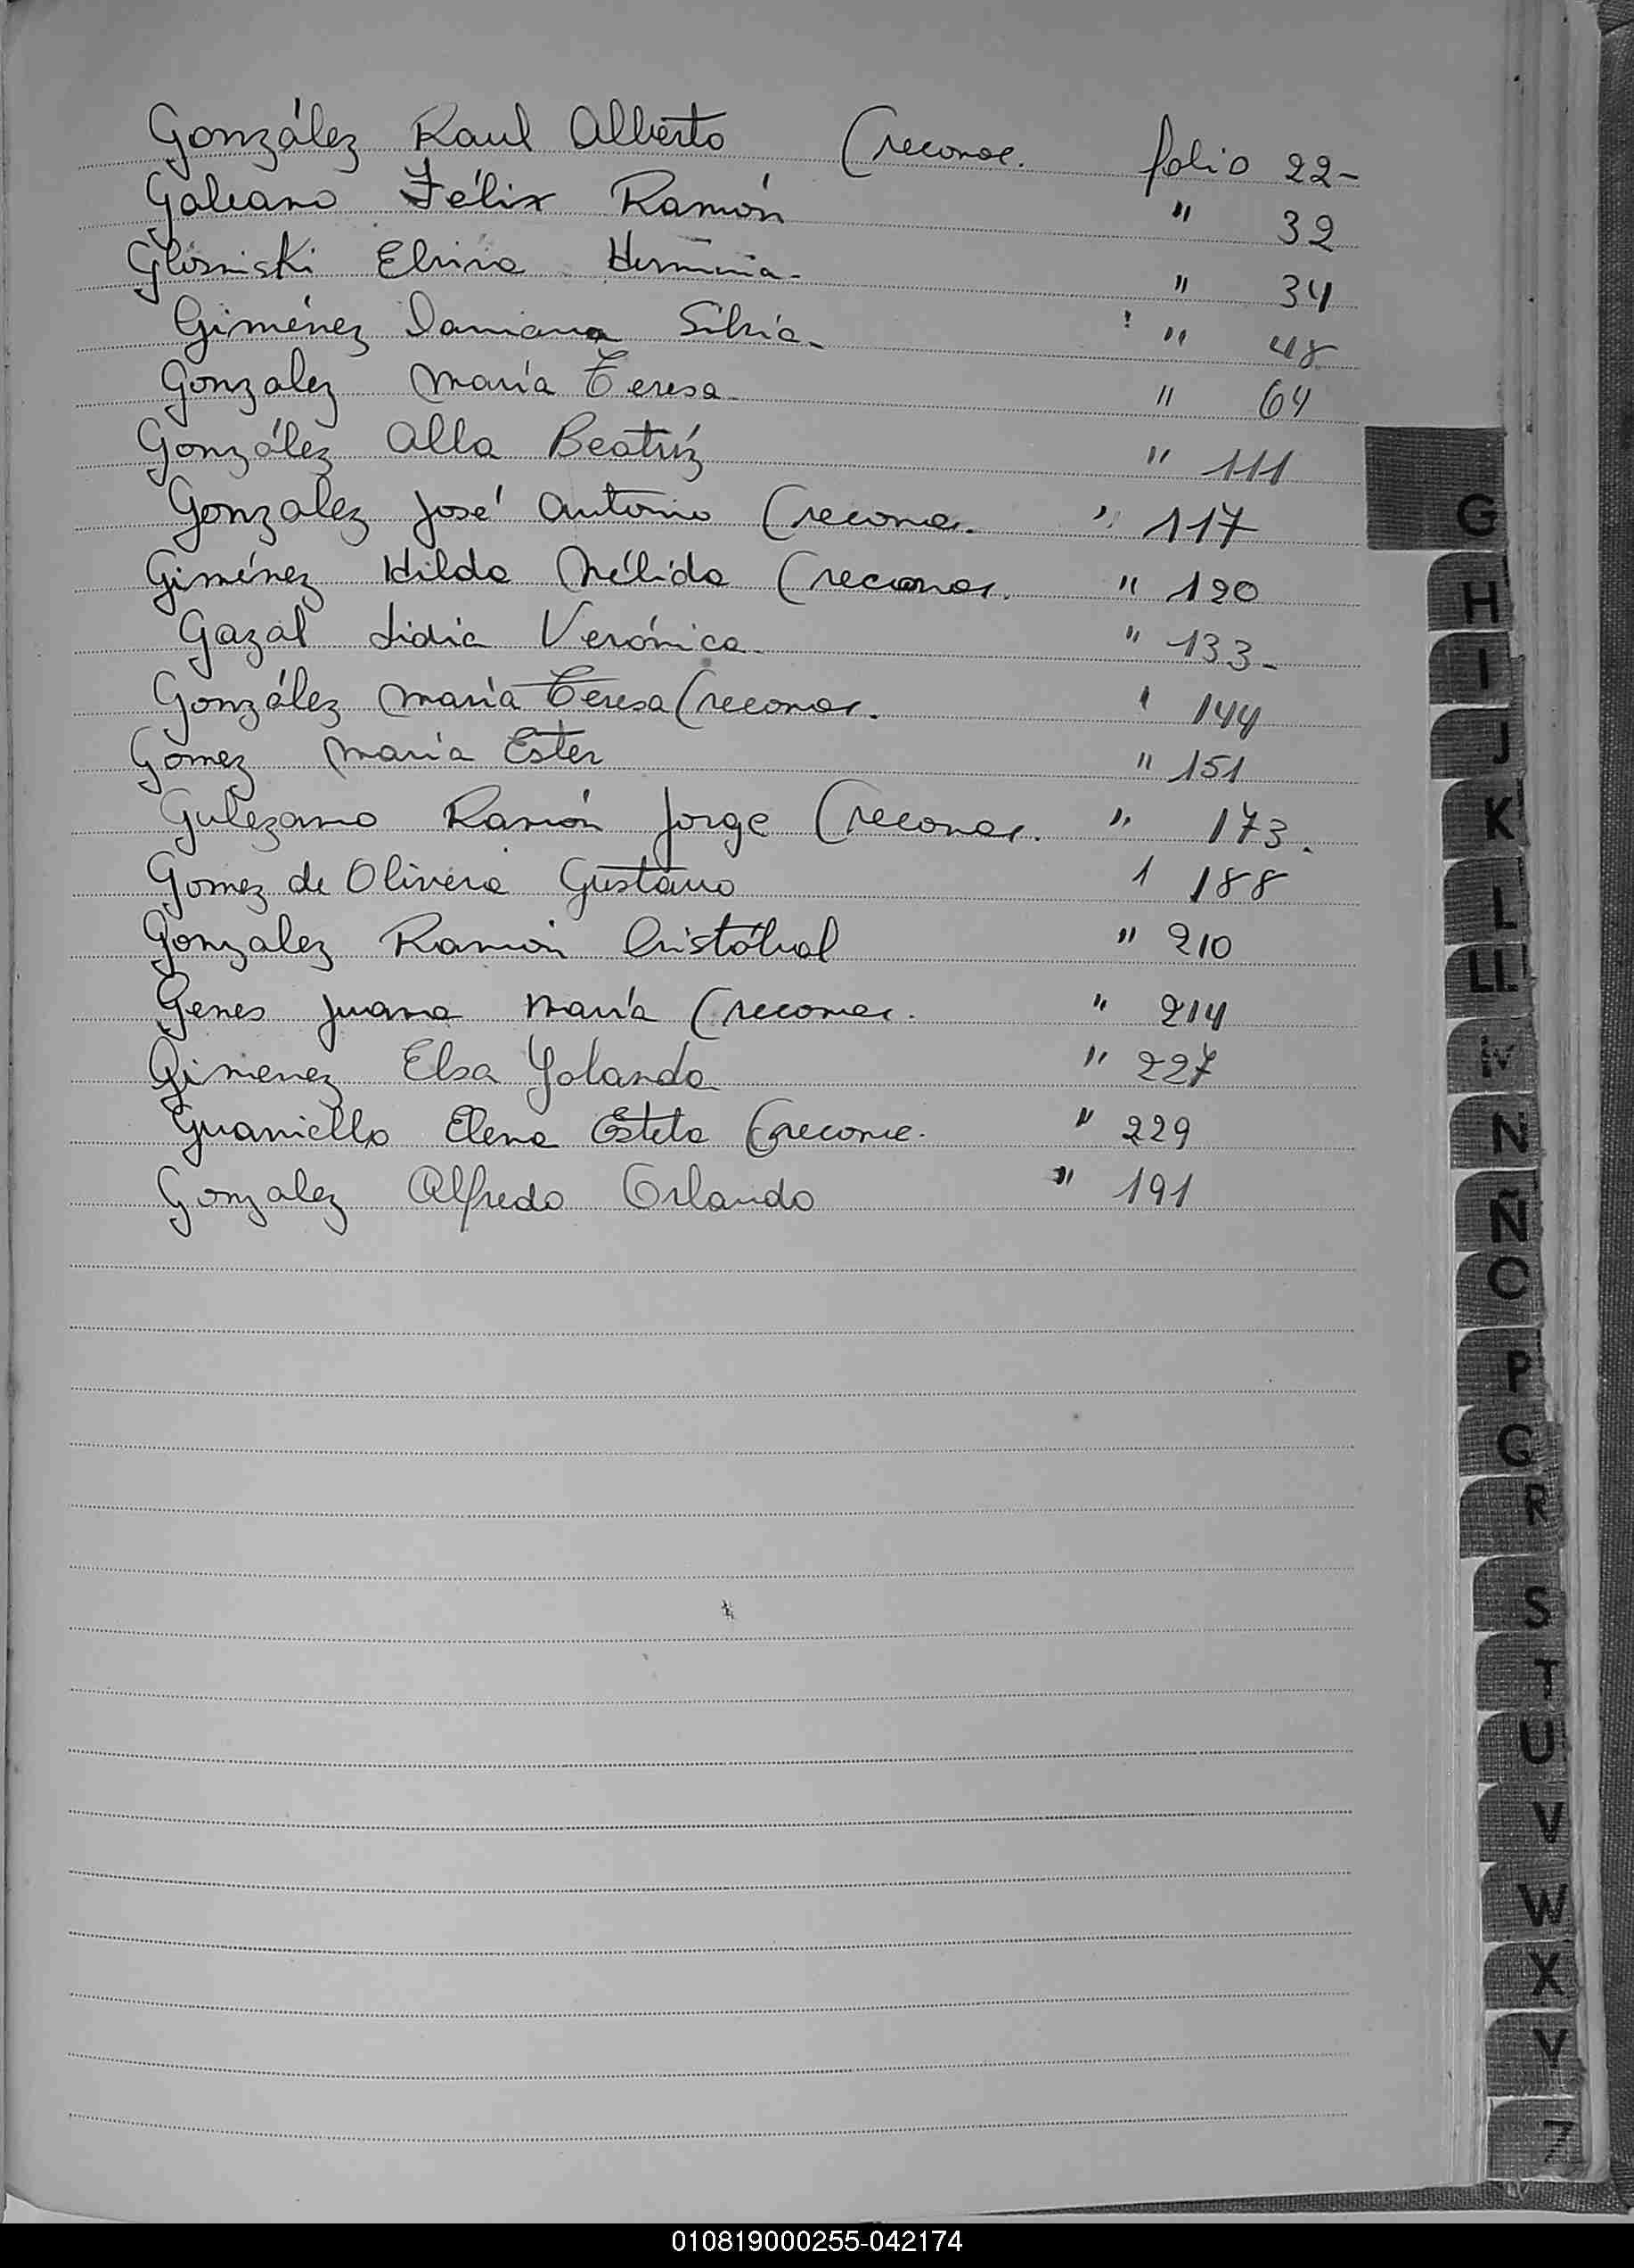 González Raul Alberto (reconoc. folio 22-
Galeano Félix Ramón " 32
Glosniski Elvira Herminia- " 34
Giménez Damiana Silvia- " 48
Gonzalez María Teresa- " 64
González Alba Beatríz " 111
Gonzalez José Antonio (reconoc. " 117
Giménez Hilda Nélida (reconoc. " 120
Gazal Lidia Verónica- " 133-
González María Teresa (reconoc. " 144
Gomez María Ester " 151
Ramón Jorge (reconoc. " 173.
Gomez de Olivera Gustavo " 188
Gonzalez Ramón Cristóbal " 210
Genes Juana María (reconoc. " 214
Gimenez Elsa Yolanda " 227
Guaniello Elena Estela (reconc. " 229
Gonzalez Alfredo Orlando " 191
G
H
I
J
K
L
LL
M
N
Ñ
O
P
Q
R
S
T
U
V
W
X
Y
Z
010819000255-042174